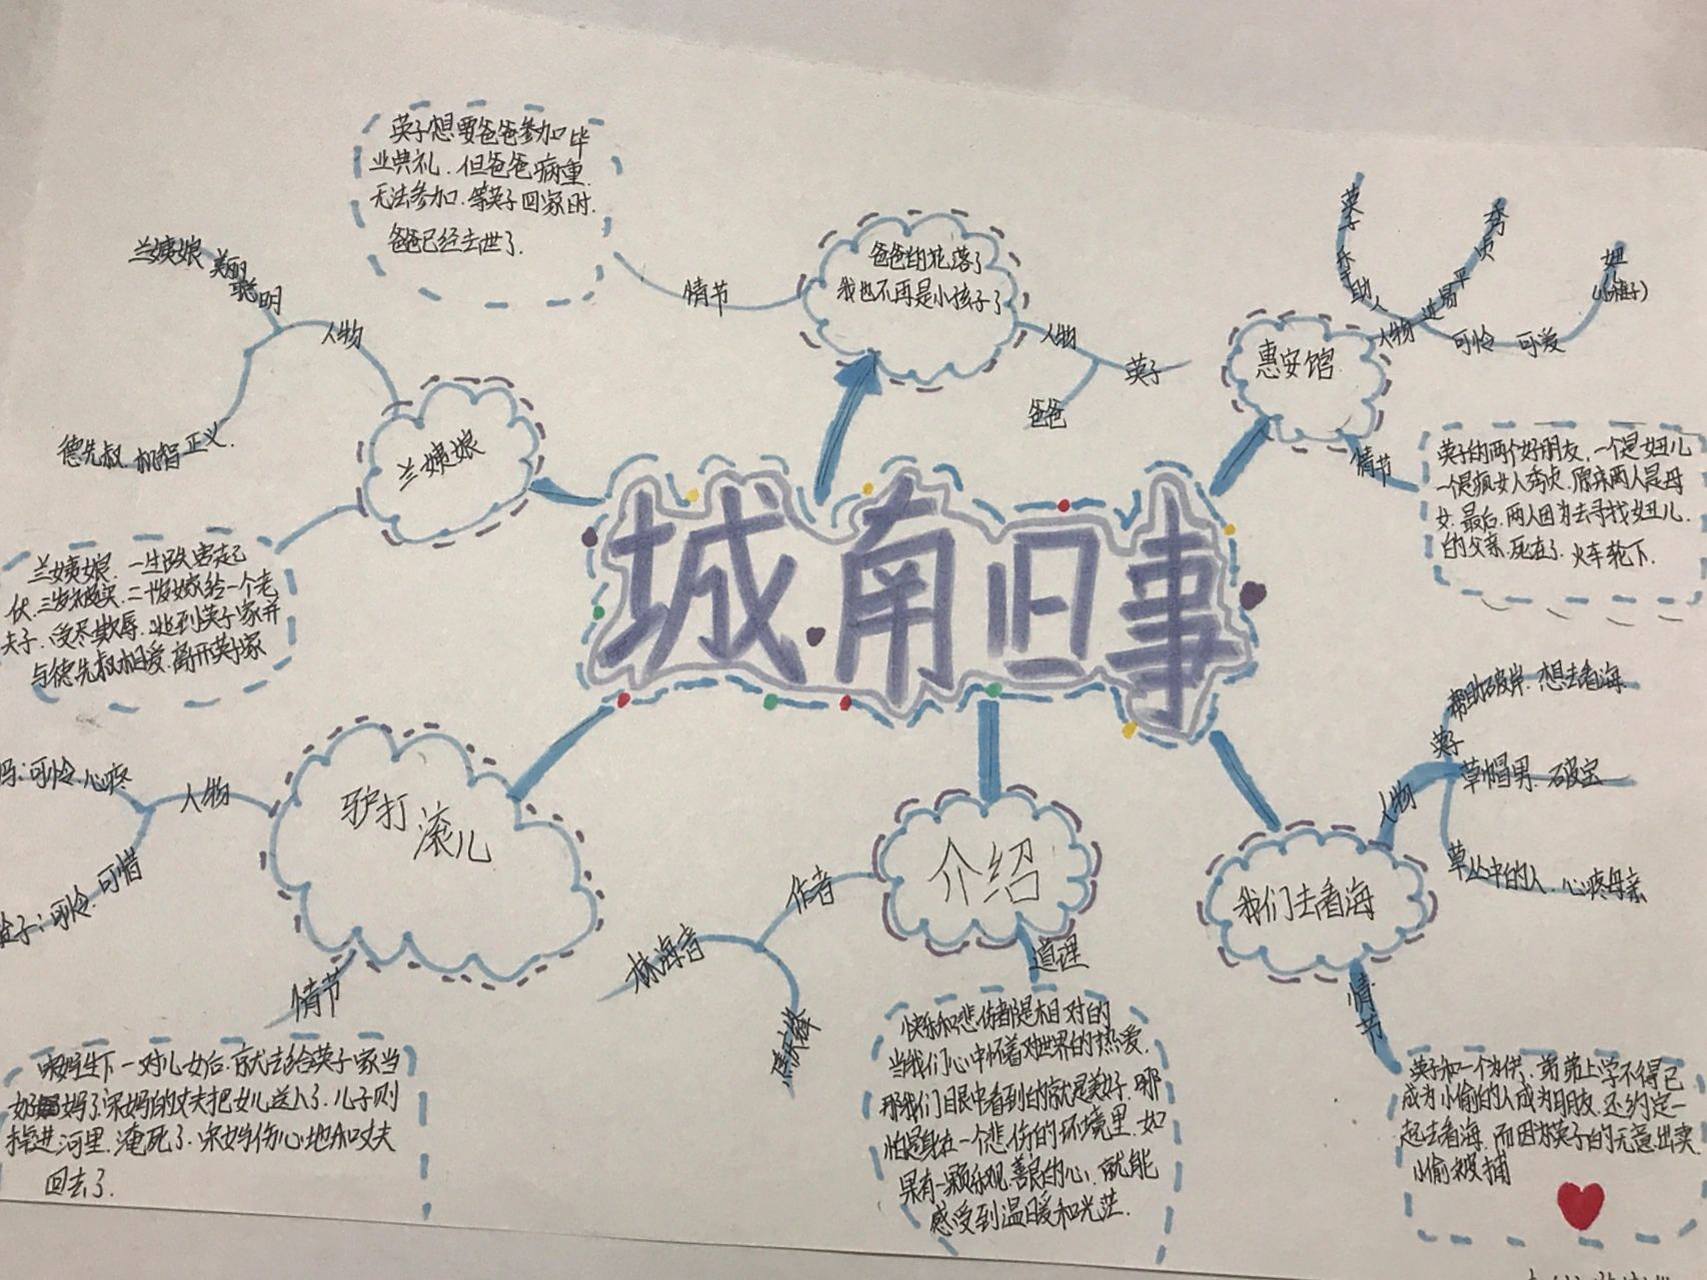 城南旧事
爸爸的花落了
我也不再是小孩子了
情节
英子想要爸爸参加毕
业典礼.但爸爸病重.
无法参加.等英子回家时.
爸爸已经去世了.
人物
英子
爸爸
惠安馆
人物
英子
助人
秀贞
可怜
可爱
妞
情节
英子的两个好朋友,一个是妞儿
一个是疯女人秀贞.原来两人是母
女.最后.两人因为去寻找妞儿.
的父亲.死在了.火车轮下.
兰姨娘
人物
兰姨娘 美丽
聪明
德先叔.机智正义.
兰姨娘.一生跌宕起
伏.三岁被卖.二十岁嫁给一个老
夫子.受尽欺辱.逃到英子家并
与德先叔相爱.离开英子家
驴打
滚儿
人物
妈:可怜.心疼
可怜.可惜
情节
宋妈生下一对儿女后.就去给英子家当
奶妈了.宋妈的丈夫把女儿送人了.儿子则
掉进河里.淹死了.宋妈伤心地和丈夫
回去了.
介绍
作者
林海音
道理
快乐和悲伤都是相对的
当我们心中怀着对世界的热爱.
那我们眼中看到的就是美好.哪
怕是身在一个悲伤的环境里.如
果有一颗乐观.善良的心.就能
感受到温暖和光芒.
我们去看海
人物
英子
想去看海
草帽男.
草丛中的人.心疼母亲
情节
英子和一个为供.弟弟上学不得已
成为小偷的人成为朋友.还约定一
起去看海.而因为英子的无意出卖.
小偷被捕